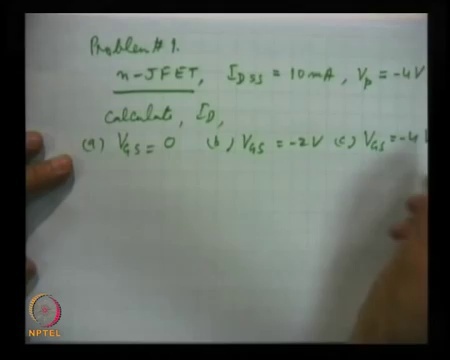 Problem # 1.
n-JFET, IDSS = 10 mA, Vp = -4V
Calculate, ID,
(a) VGS = 0 (b) VGS = -2V (c) VGS = -4V
NPTEL